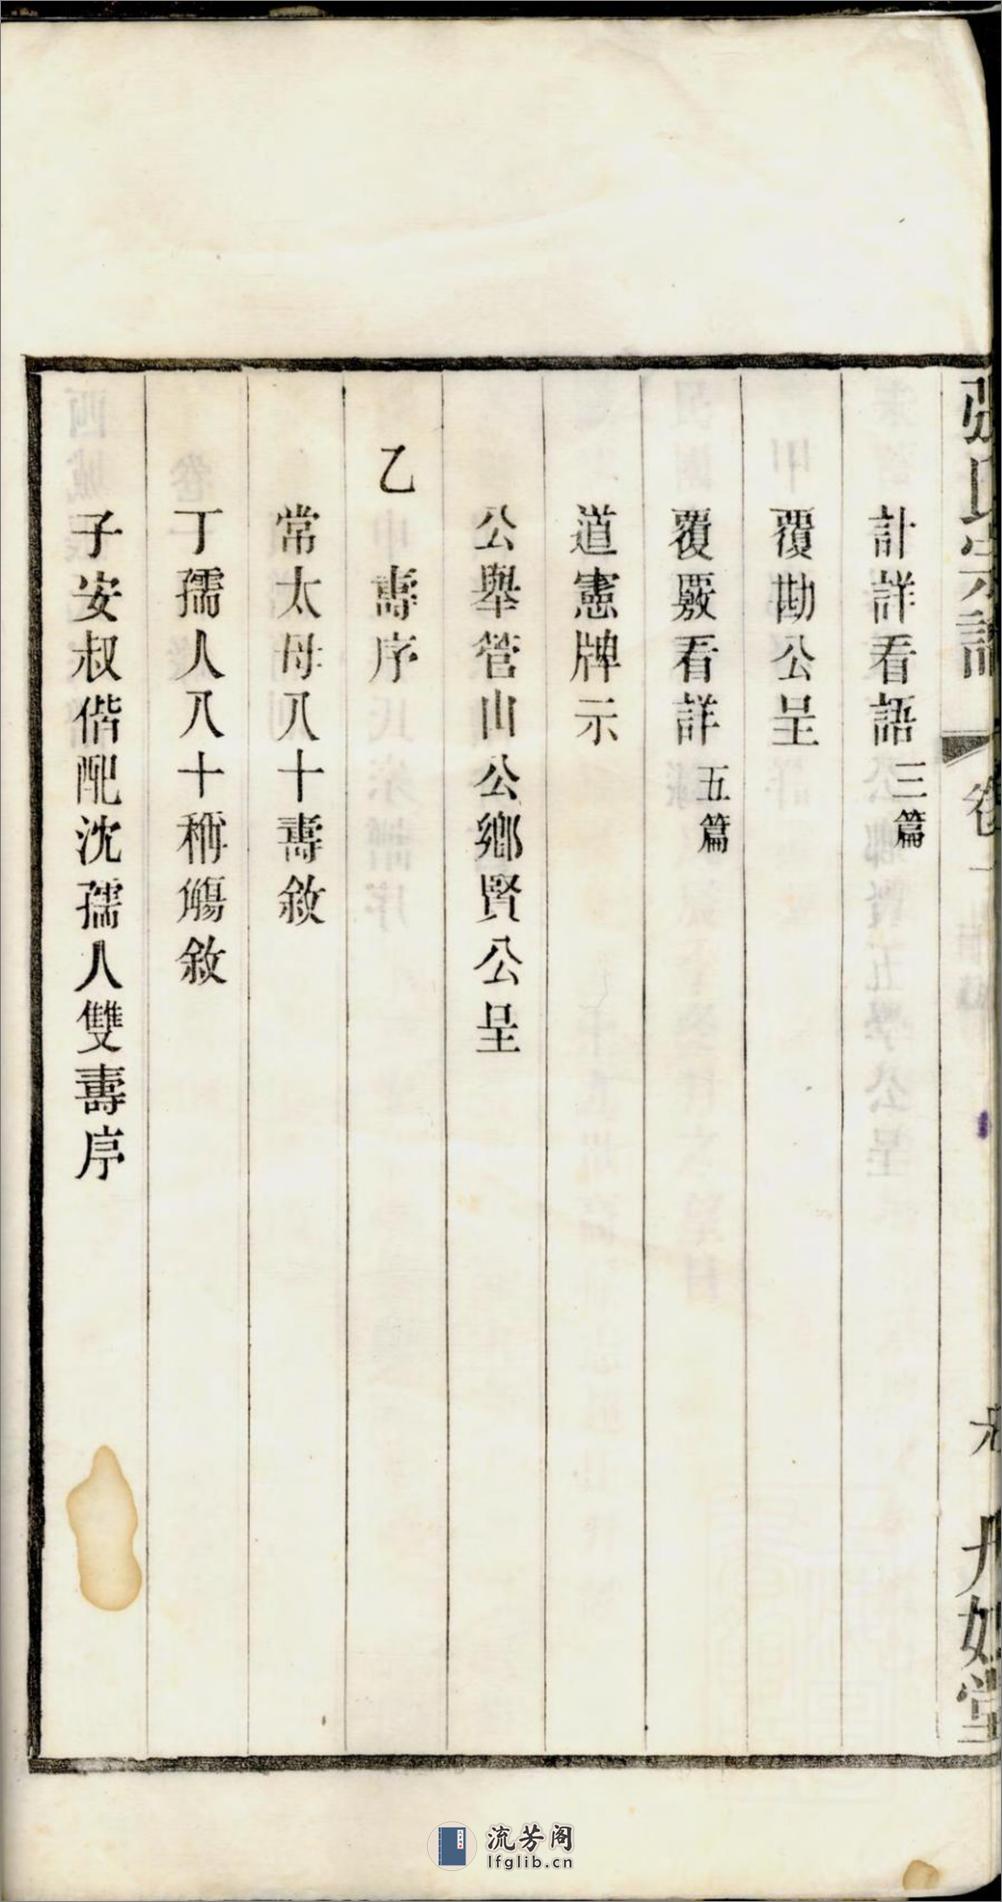 張氏宗譜 卷一 九如堂
計詳看語 三篇
覆勘公呈
覆覈看詳 五篇
道憲牌示
公舉管山公鄉賢公呈
乙
壽序
常太母八十壽敘
丁孺人八十稱觴敘
子安叔偕配沈孺人雙壽序
流芳阁
lfglib.cn